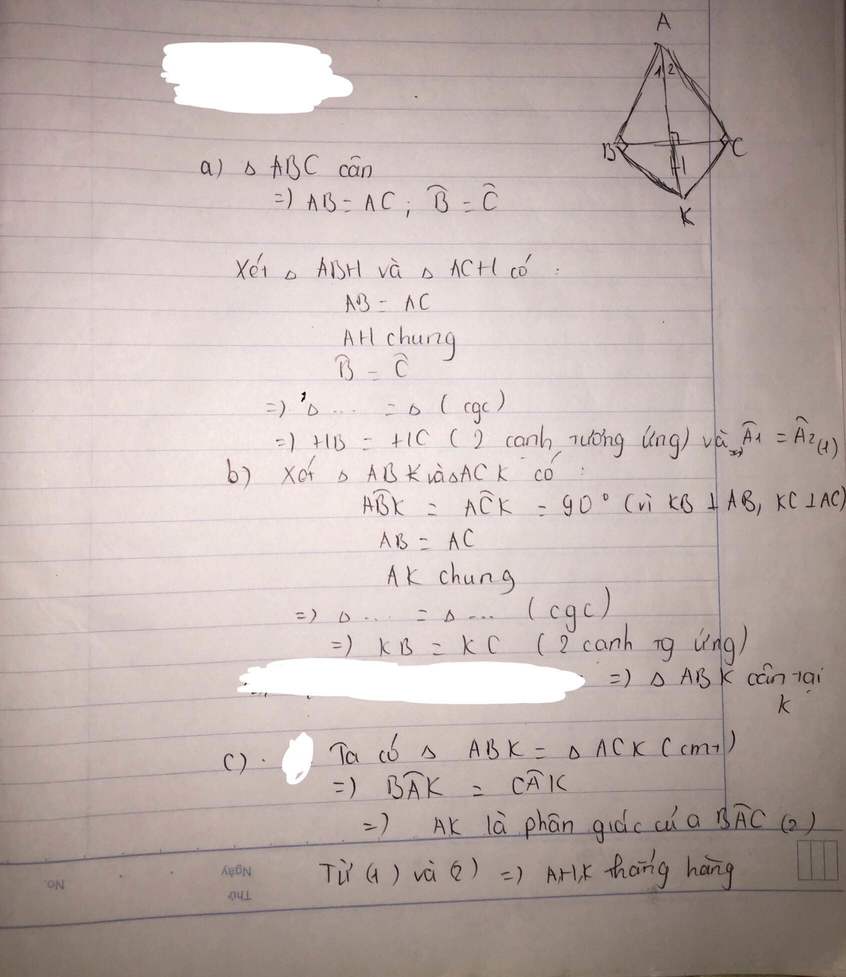 A
1 2
B
C
H
K
a) △ ABC cân
=) AB = AC ; B̂ = Ĉ
Xét △ ABH và △ ACH có :
AB = AC
AH chung
B̂ = Ĉ
=) △ ... = △ ( cgc )
=) HB = HC ( 2 cạnh tương ứng) và Â1 = Â2 (1)
b) Xét △ ABK và △ ACK có :
AB̂K = AĈK = 90° (vì KB ⊥ AB, KC ⊥ AC)
AB = AC
AK chung
=) △ ... = △ ... ( cgc )
=) KB = KC ( 2 cạnh tg ứng)
=) △ ABK cân tại
K
c) . Ta có △ ABK = △ ACK ( cmt )
=) BÂK = CÂK
=) AK là phân giác của BÂC (2)
Từ (1) và (2) =) A,H,K thẳng hàng
Thứ
Ngày
No.